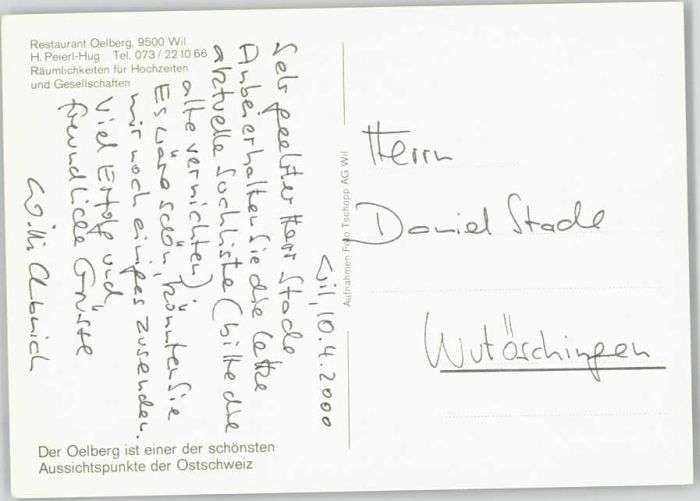 Restaurant Oelberg, 9500 Wil
H. Peierl-Hug Tel. 073/22 10 66
Räumlichkeiten für Hochzeiten
und Gesellschaften
Wil, 10.4.2000
Sehr geehrter Herr Stade
Anbei erhalten Sie die letzte
aktuelle Suchliste (bitte die
alte vernichten).
Es wäre schön, könnten Sie
mir noch einiges zusenden.
Viel Erfolg und
freundliche Grüsse
Willi
Aufnahmen Foto Tschopp AG Wil
Herrn
Daniel Stade
Wutöschingen
Der Oelberg ist einer der schönsten
Aussichtspunkte der Ostschweiz